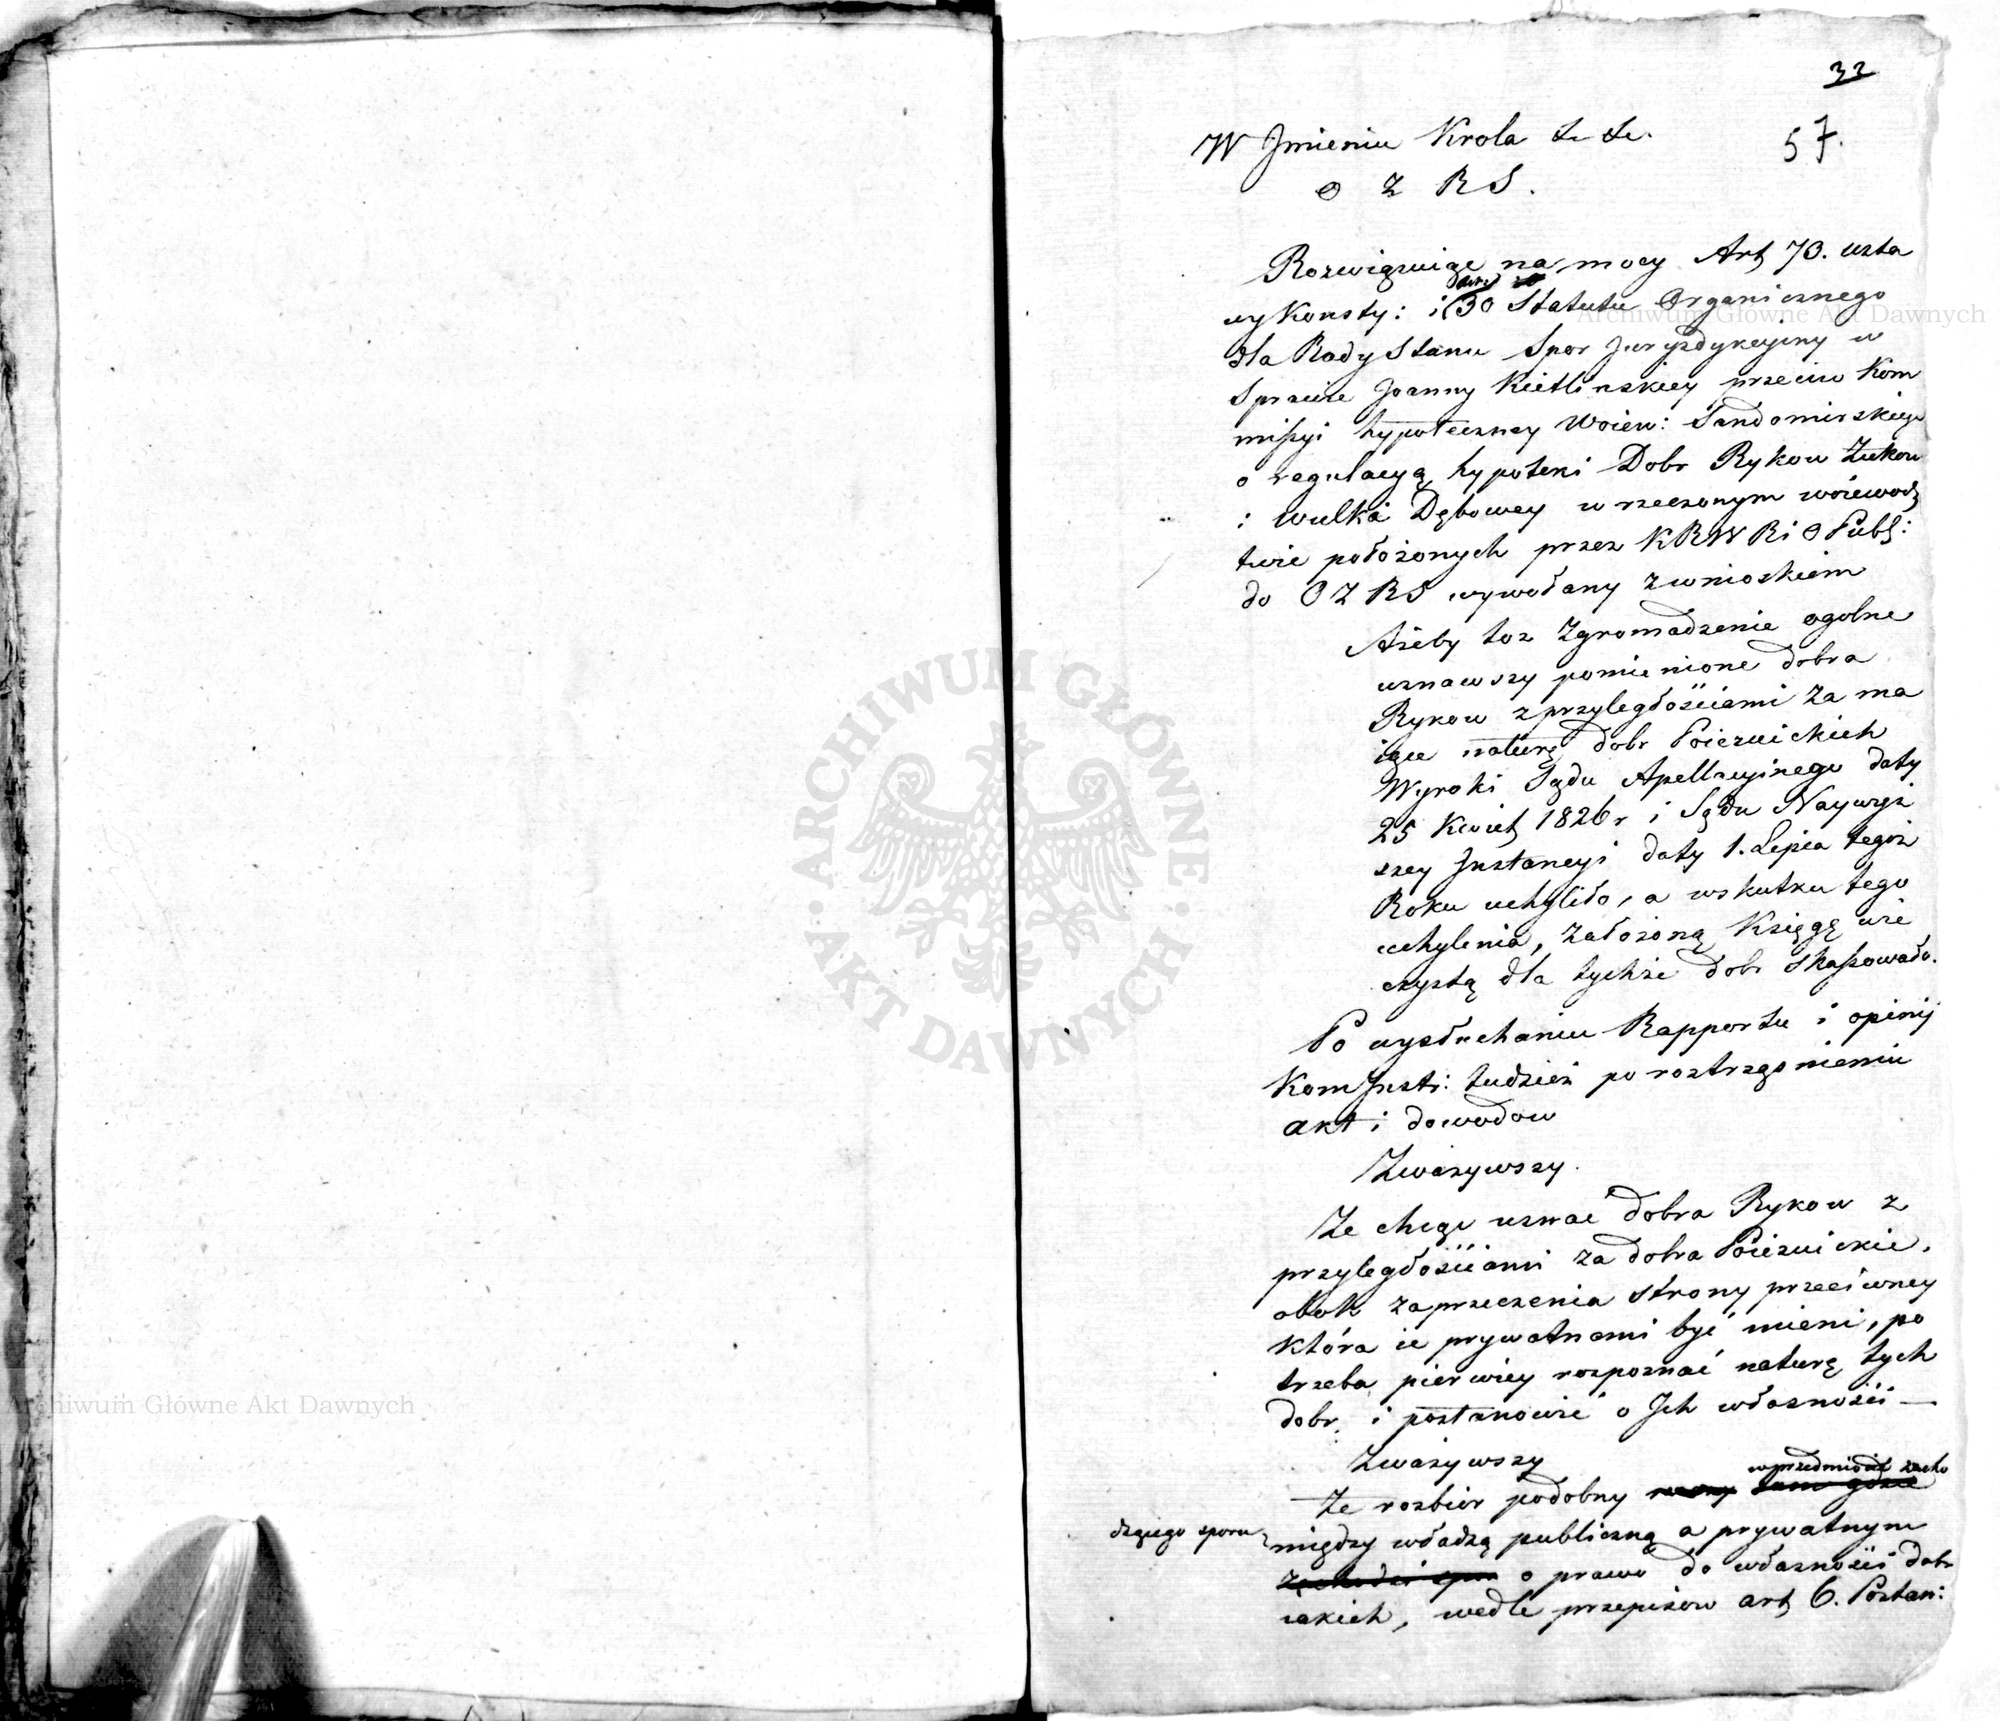 32
57.
W Jmieniu Krola &c &c.
O Z R S.
Rozwiązuiąc na mocy Art 73. usta
wy Konsty: i 30 Statutu Organicznego
dla Rady Stanu Spor Juryzdykcyiny w
Sprawie Joanny Kietlinskiey przeciw Kom
missyi hypoteczney Woiew: Sandomirskiego
o regulacyą hypoteki Dobr Rykow Zukow
i Wulka Dębowey w rzeczonym woiewodz
twie położonych przez KRWR i O Publ:
do OZRS wywołany z wnioskiem
Ażeby toz Zgromadzenie ogolne
uznawszy pomienione dobra
Rykow z przyległościami za ma
iące naturę dobr Poiezuickich
Wyroki Sądu Apellacyinego daty
25 Kwiet 1826 r i Sądu Naywyż
szey Jnstancyi daty 1. Lipca tegoż
Roku uchyliło, a w skutku tego
uchylenia, założoną Księgę wie
czystą dla tychże dobr skassowało.
Po wysłuchaniu Rapportu i opinij
Kom Jnstr: tudzież po roztrząśnieniu
akt i dowodow
Zważywszy.
Ze chcąc uznać dobra Rykow z
przyległościami za dobra Poiezuickie,
obok zaprzeczenia strony przeciwney
która ie prywatnemi być mieni, po
trzeba pierwiey rozpoznać naturę tych
dobr i postanowić o Jch własności —
Zważywszy
w przedmiocie zacho
Ze rozbior podobny
dzącego sporu
między władzą publiczną a prywatnym
o prawo do własności dobr
iakich, wedle przepisow art 6. Postan:
Archiwum Główne Akt Dawnych
Archiwum Główne Akt Dawnych
ARCHIWUM GŁÓWNE
AKT DAWNYCH